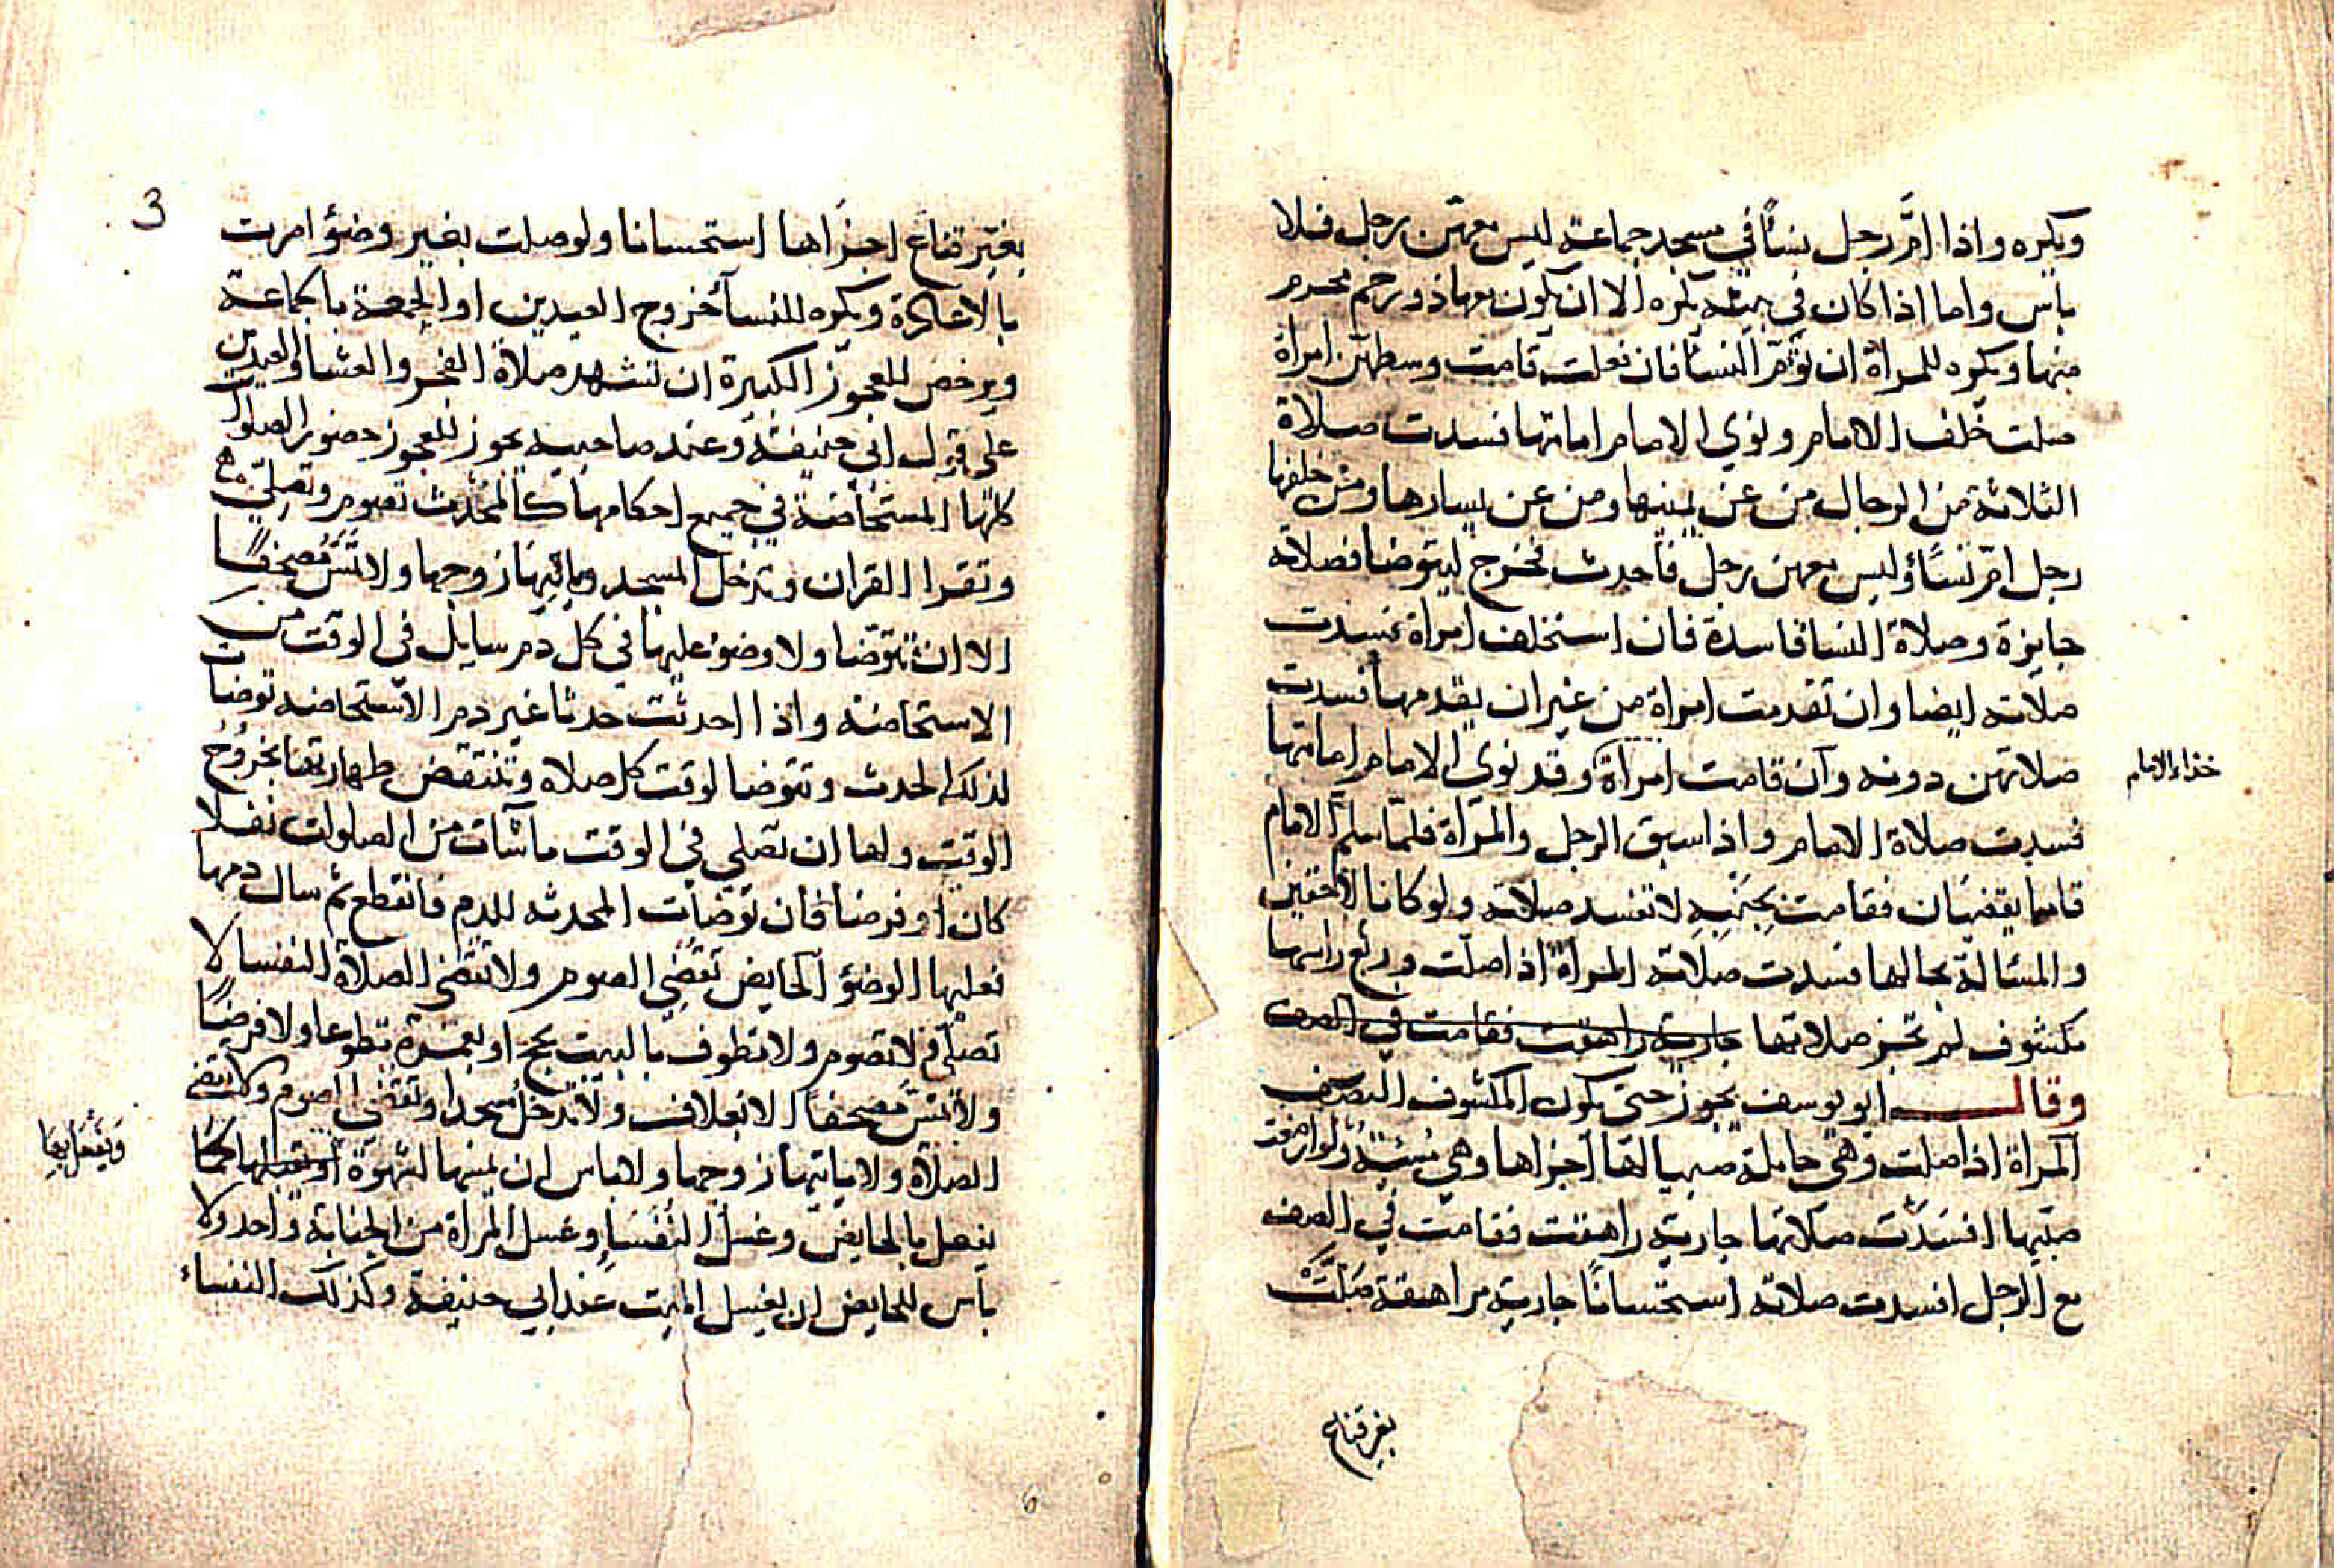 ويكره واذا امَّ رجل نسأً في مسجد جماعة ليس معهن رجل فلا
باس واما اذا كان في بيته يكره الا ان يكون معها ذو رحم محرم
منها ويكره للمرأة ان تؤمّ النسأ فان فعلت قامت وسطهن امراة
صلت خلف الامام ونوي الامام امامتها فسدت صلاة
الثلاثة من الرجال من عن يمينها ومن عن يسارها ومن خلفها
رجل امّ نسأً وليس معهن رجل فاحدث فخرج ليتوضا فصلاته
جايزة وصلاة النسا فاسدة فان استخلف امراة فسدت
صلاته ايضا وان تقدمت امراة من غير ان يقدمها فسدت
صلاتهن دونه وان قامت امراة وقد نوى الامام امامتها
حذاء الامام
فسدت صلاة الامام واذا سبق الرجل والمرأة فلمّا سلم الامام
قاما يقضيان فقامت بجنبه لا تفسد صلاته ولو كانا لاحقين
والمسالة بحالها فسدت صلاته المراة اذا صلت وربع راسها
مكشوف لم تجز صلاتها جارية راهقت فقامت في الصف
وقال ابو يوسف يجوز حتى يكون المكشوف النصف
المراة اذا صلت وهي حاملة صبيا لها اجزاها وهي مسيئة ولو ارضعت
صبيها فسدت صلاتها جارية راهقت فقامت في الصف
مع الرجل افسدت صلاته استحسانًا جارية مراهقة صلت
بغير قناع
3
بغير قناع اجزاها استحسانا ولو صلت بغير وضؤ امرت
بالاعادة ويكره للنسأ خروج العيدين او الجمعة بالجماعة
ويرخص للعجوز الكبيرة ان تشهد صلاة الفجر والعشا والعيدين
على قول ابي حنيفة وعند صاحبيه يجوز للعجوز حضور الصلوات
كلها المستحاضة في جميع احكامها كالمحدث تصوم وتصلي
وتقرا القران وتدخل المسجد وياتيها زوجها ولا تمس مصحفًا
الا ان تتوضا ولا وضوء عليها في كل دم سايل في الوقت من
الاستحاضة واذا احدثت حدثا غير دم الاستحاضه توضات
لذلك الحدث وتتوضا لوقت كل صلاه وتنتقض طهارتها بخروج
الوقت ولها ان تصلي في الوقت ما شأت من الصلوات نفلا
كان او فرضا فان توضأت المحدثه للدم فانقطع ثم سال دمها
فعليها الوضؤ الحايض تقضي الصوم ولا تقضي الصلاة النفسا لا
تصلي ولا تصوم ولا تطوف بالبيت بحج او بعمرة تطوعا ولا فرضًا
ولا تمس مصحفا الا بغلاف ولا تدخل مسجدا وتقضي الصوم ولا تقضي
الصلاة ولا ياتيها زوجها ولا باس ان يمسها لشهوة كما
ويفعل بها
يفعل بالحايض وغسل النفسا وغسل المراة من الجنابة واحد ولا
باس للحايض ان يغسل الميت عند ابي حنيفة وكذلك النفساء
6